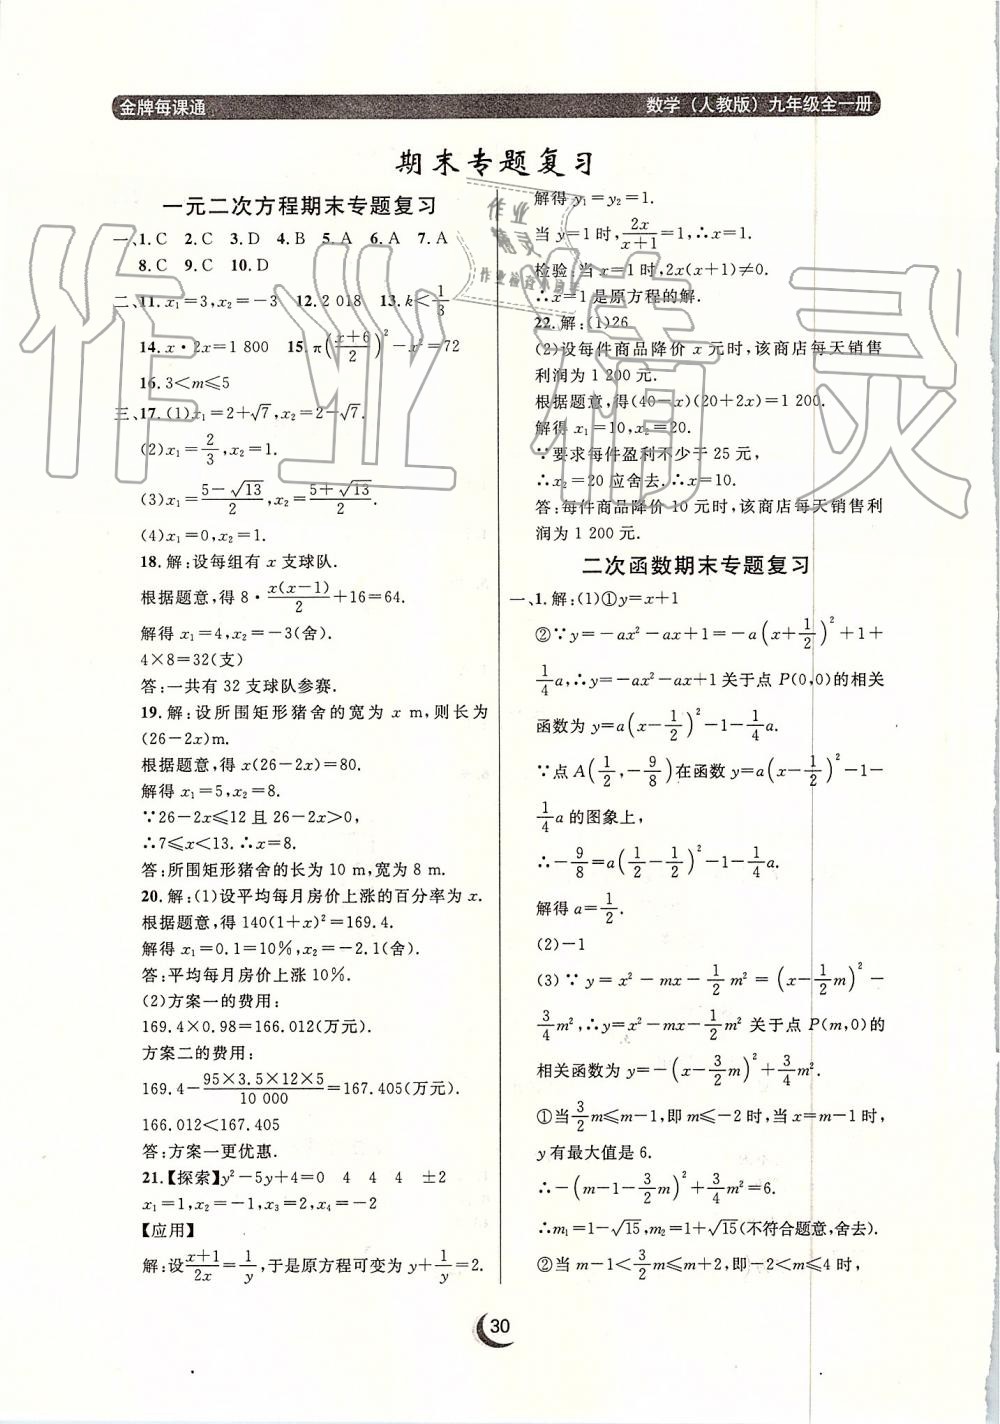 金牌每课通
数学（人教版）九年级全一册
期末专题复习
一元二次方程期末专题复习
一、1.C 2.C 3.D 4.B 5.A 6.A 7.A
8.C 9.C 10.D
二、11.x₁=3,x₂=-3 12.2 018 13.k<1/3
14.x·2x=1 800 15.π((x+6)/2)²-x²=72
16.3<m≤5
三、17.(1)x₁=2+√7,x₂=2-√7.
(2)x₁=2/3,x₂=1.
(3)x₁=(5-√13)/2,x₂=(5+√13)/2.
(4)x₁=0,x₂=1.
18.解:设每组有 x 支球队.
根据题意,得 8·x(x-1)/2+16=64.
解得 x₁=4,x₂=-3(舍).
4×8=32(支)
答:一共有 32 支球队参赛.
19.解:设所围矩形猪舍的宽为 x m,则长为
(26-2x)m.
根据题意,得 x(26-2x)=80.
解得 x₁=5,x₂=8.
∵26-2x≤12 且 26-2x>0,
∴7≤x<13.∴x=8.
答:所围矩形猪舍的长为 10 m,宽为 8 m.
20.解:(1)设平均每月房价上涨的百分率为 x.
根据题意,得 140(1+x)²=169.4.
解得 x₁=0.1=10%,x₂=-2.1(舍).
答:平均每月房价上涨 10%.
(2)方案一的费用:
169.4×0.98=166.012(万元).
方案二的费用:
169.4-(95×3.5×12×5)/10 000=167.405(万元).
166.012<167.405
答:方案一更优惠.
21.【探索】y²-5y+4=0 4 4 4 ±2
x₁=1,x₂=-1,x₃=2,x₄=-2
【应用】
解:设(x+1)/2x=1/y,于是原方程可变为 y+1/y=2.
解得 y₁=y₂=1.
当 y=1 时,2x/(x+1)=1,∴x=1.
检验:当 x=1 时,2x(x+1)≠0.
∴x=1 是原方程的解.
22.解:(1)26
(2)设每件商品降价 x 元时,该商店每天销售
利润为 1 200 元.
根据题意,得(40-x)(20+2x)=1 200.
解得 x₁=10,x₂=20.
∵要求每件盈利不少于 25 元,
∴x₂=20 应舍去.∴x=10.
答:每件商品降价 10 元时,该商店每天销售利
润为 1 200 元.
二次函数期末专题复习
一、1.解:(1)①y=x+1
②∵y=-ax²-ax+1=-a(x+1/2)²+1+
1/4a,∴y=-ax²-ax+1 关于点 P(0,0)的相关
函数为 y=a(x-1/2)²-1-1/4a.
∵点 A(1/2,-9/8)在函数 y=a(x-1/2)²-1-
1/4a 的图象上,
∴-9/8=a(1/2-1/2)²-1-1/4a.
解得 a=1/2.
(2)-1
(3)∵y=x²-mx-1/2m²=(x-1/2m)²-
3/4m²,∴y=x²-mx-1/2m² 关于点 P(m,0)的
相关函数为 y=-(x-3/2m)²+3/4m².
①当3/2m≤m-1,即 m≤-2 时,当 x=m-1 时,
y 有最大值是 6.
∴-(m-1-3/2m)²+3/4m²=6.
∴m₁=1-√15,m₂=1+√15(不符合题意,舍去).
②当 m-1<3/2m≤m+2,即-2<m≤4 时,
30
作业精灵
作业
精灵